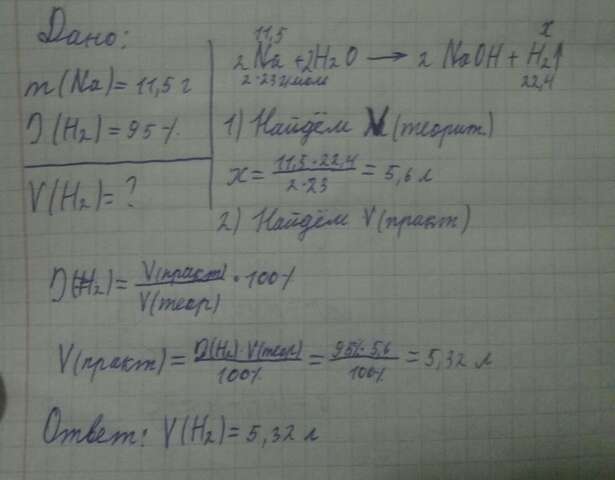 Дано:
m(Na)=11,5 г
η(H₂)=95%
V(H₂)=?
11,5 x
2Na+2H₂O → 2NaOH+H₂↑
2·23 г/моль 22,4
1) Найдём V(теорит.)
x= 11,5·22,4 / 2·23 = 5,6 л
2) Найдём V(практ)
η(H₂)= V(практ) / V(теор) · 100%
V(практ)= η(H₂)·V(теор) / 100% = 95%·5,6 / 100% = 5,32 л
Ответ: V(H₂)=5,32 л